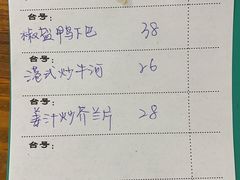 台号:
椒盐鸭下巴 38
台号:
港式炒牛河 26
台号:
姜汁炒芥兰片 28
台号: